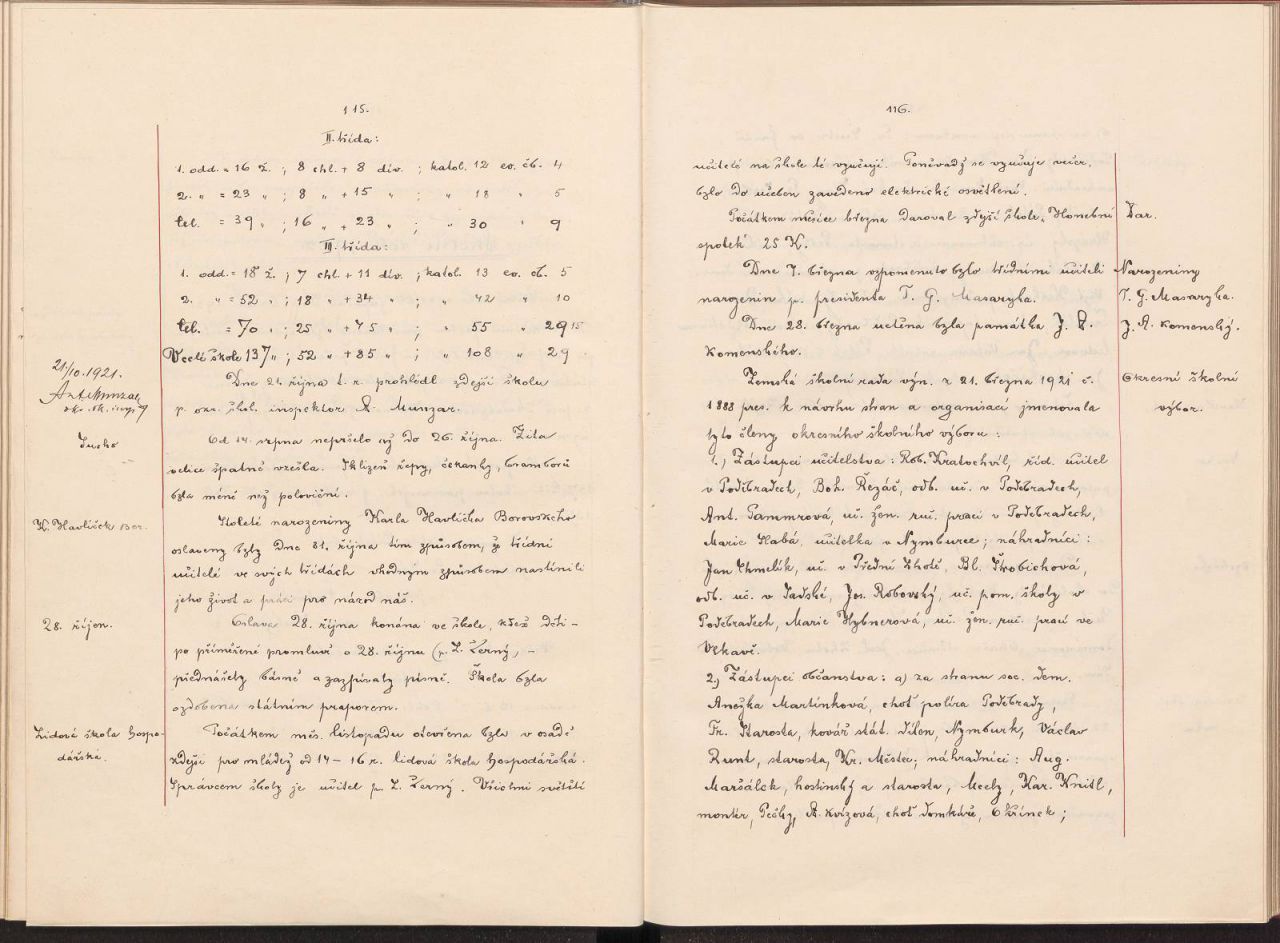 115.
II. třída:
1. odd. = 16 ž. ; 8 chl. + 8 dív. ; katol. 12 ev. čb. 4
2. " = 23 " ; 8 " + 15 " ; " 18 " 5
Cel. = 39 " ; 16 " + 23 " ; " 30 " 9
III. třída:
1. odd. = 18 ž. ; 7 chl. + 11 dív. ; katol. 13 ev. čb. 5
2. " = 52 " ; 18 " + 34 " ; " 42 " 10
Cel. = 70 " ; 25 " + 45 " ; " 55 " 15
V celé škole 137 " ; 52 " + 85 " ; " 108 " 29
21/10. 1921.
Ant. Munzar
okr. šk. insp.
Dne 21. října t. r. prohlédl zdejší školu
p. okr. škol. inspektor A. Munzar.
Sucho
Od 14. srpna nepršelo až do 26. října. Žita
velice špatně vzešla. Sklizeň řepy, čekanky, bramborů
byla méně než poloviční.
K. Havlíček Bor.
Stoleté narozeniny Karla Havlíčka Borovského
oslaveny byly dne 31. října tím způsobem, že třídní
učitelé ve svých třídách vhodným způsobem nastínili
jeho život a práci pro národ náš.
28. říjen.
Oslava 28. října konána ve škole, kdež děti –
po přiměřené promluvě o 28. říjnu (p. L. Černý) , –
přednášely básně a zazpívaly písně. Škola byla
ozdobena státním praporem.
Lidová škola hospo-
dářská.
Počátkem měs. listopadu otevřena byla v osadě
zdejší pro mládež od 14 – 16 r. lidová škola hospodářská.
Správcem školy je učitel p. L. Černý. Všichni světští
116.
učitelé na škole té vyučují. Poněvadž se vyučuje večer,
bylo do učeben zavedeno elektrické osvětlení.
Dar.
Počátkem měsíce března daroval zdejší škole „Honební
spolek" 25 K.
Narozeniny
T. G. Masaryka.
Dne 7. března vzpomenuto bylo třídními učiteli
narozenin p. presidenta T. G. Masaryka.
J. A. Komenský.
Dne 28. března uctěna byla památka J. A.
Komenského.
Okresní školní
výbor.
Zemská školní rada výn. z 21. března 1921 č.
1888 pres. k návrhu stran a organisací jmenovala
tyto členy okresního školního výboru :
1.) Zástupci učitelstva : Rob. Kratochvíl, říd. učitel
v Poděbradech, Boh. Řezáč, odb. uč. v Poděbradech,
Ant. Pammrová, uč. žen. ruč. prací v Poděbradech,
Marie Habá, učitelka v Nymburce; náhradníci :
Jan Chmelík, uč. v Přední Lhotě, Bl. Škobichová,
odb. uč. v Sadské, Jos. Robovský, uč. pom. školy v
Poděbradech, Marie Hybnerová, uč. žen. ruč. prací ve
Vlkavě.
2.) Zástupci občanstva : a) za stranu soc. dem.
Anežka Martínková, choť políra Poděbrady,
Fr. Starosta, kovář stát. dílen, Nymburk, Václav
Runt, starosta, Kr. Městec; náhradníci : Aug.
Maršálek, hostinský a starosta, Mcely, Kar. Knitl,
montér, Pečky, A. Kvízová, choť domkáře, Okřínek ;